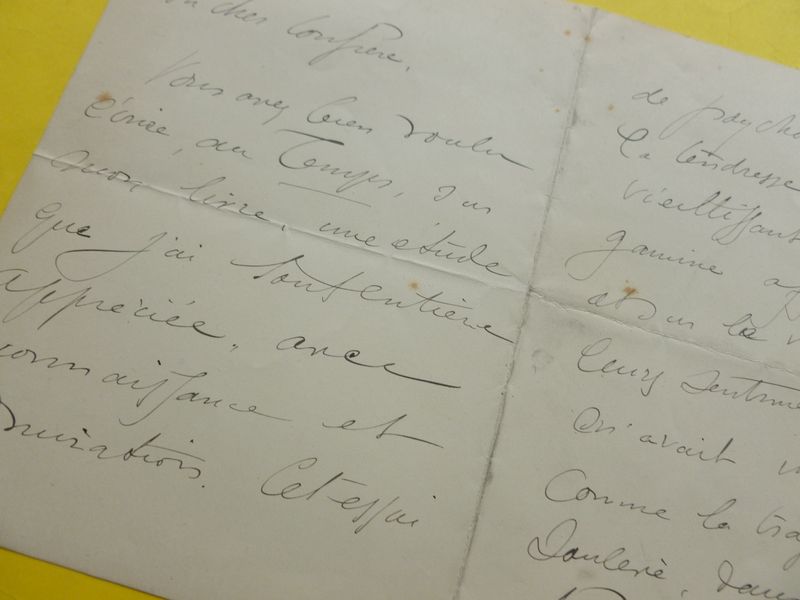 cher confrère,
Vous avez bien voulu
écrire, au Temps, sur
mon livre, une étude
que j'ai tout entière
appréciée, avec
connaissance et
Cet essai
de psycho
la tendresse
vieillissant
gamine
et sur la
leurs sentime
qu'avait
comme la